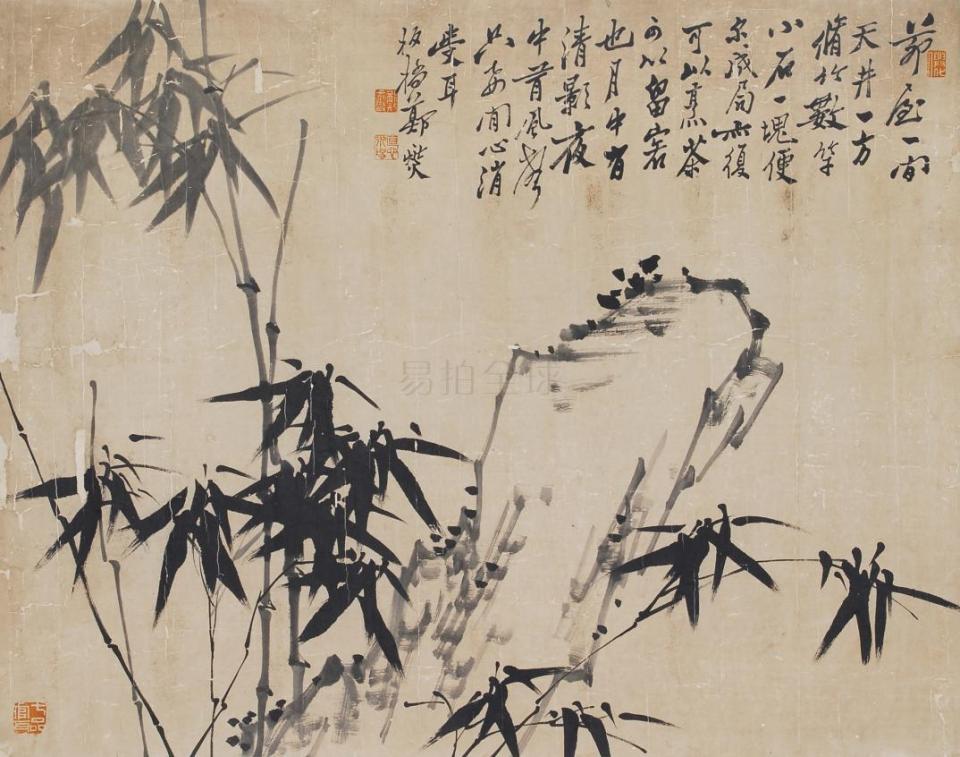 茅屋一間
天井一方
脩竹數竿
小石一塊便
尔成局亦復
可以烹茶
可以留客
也月中有
清影夜
中有風聲
只要閒心消
受耳
板橋鄭燮
易拍全球